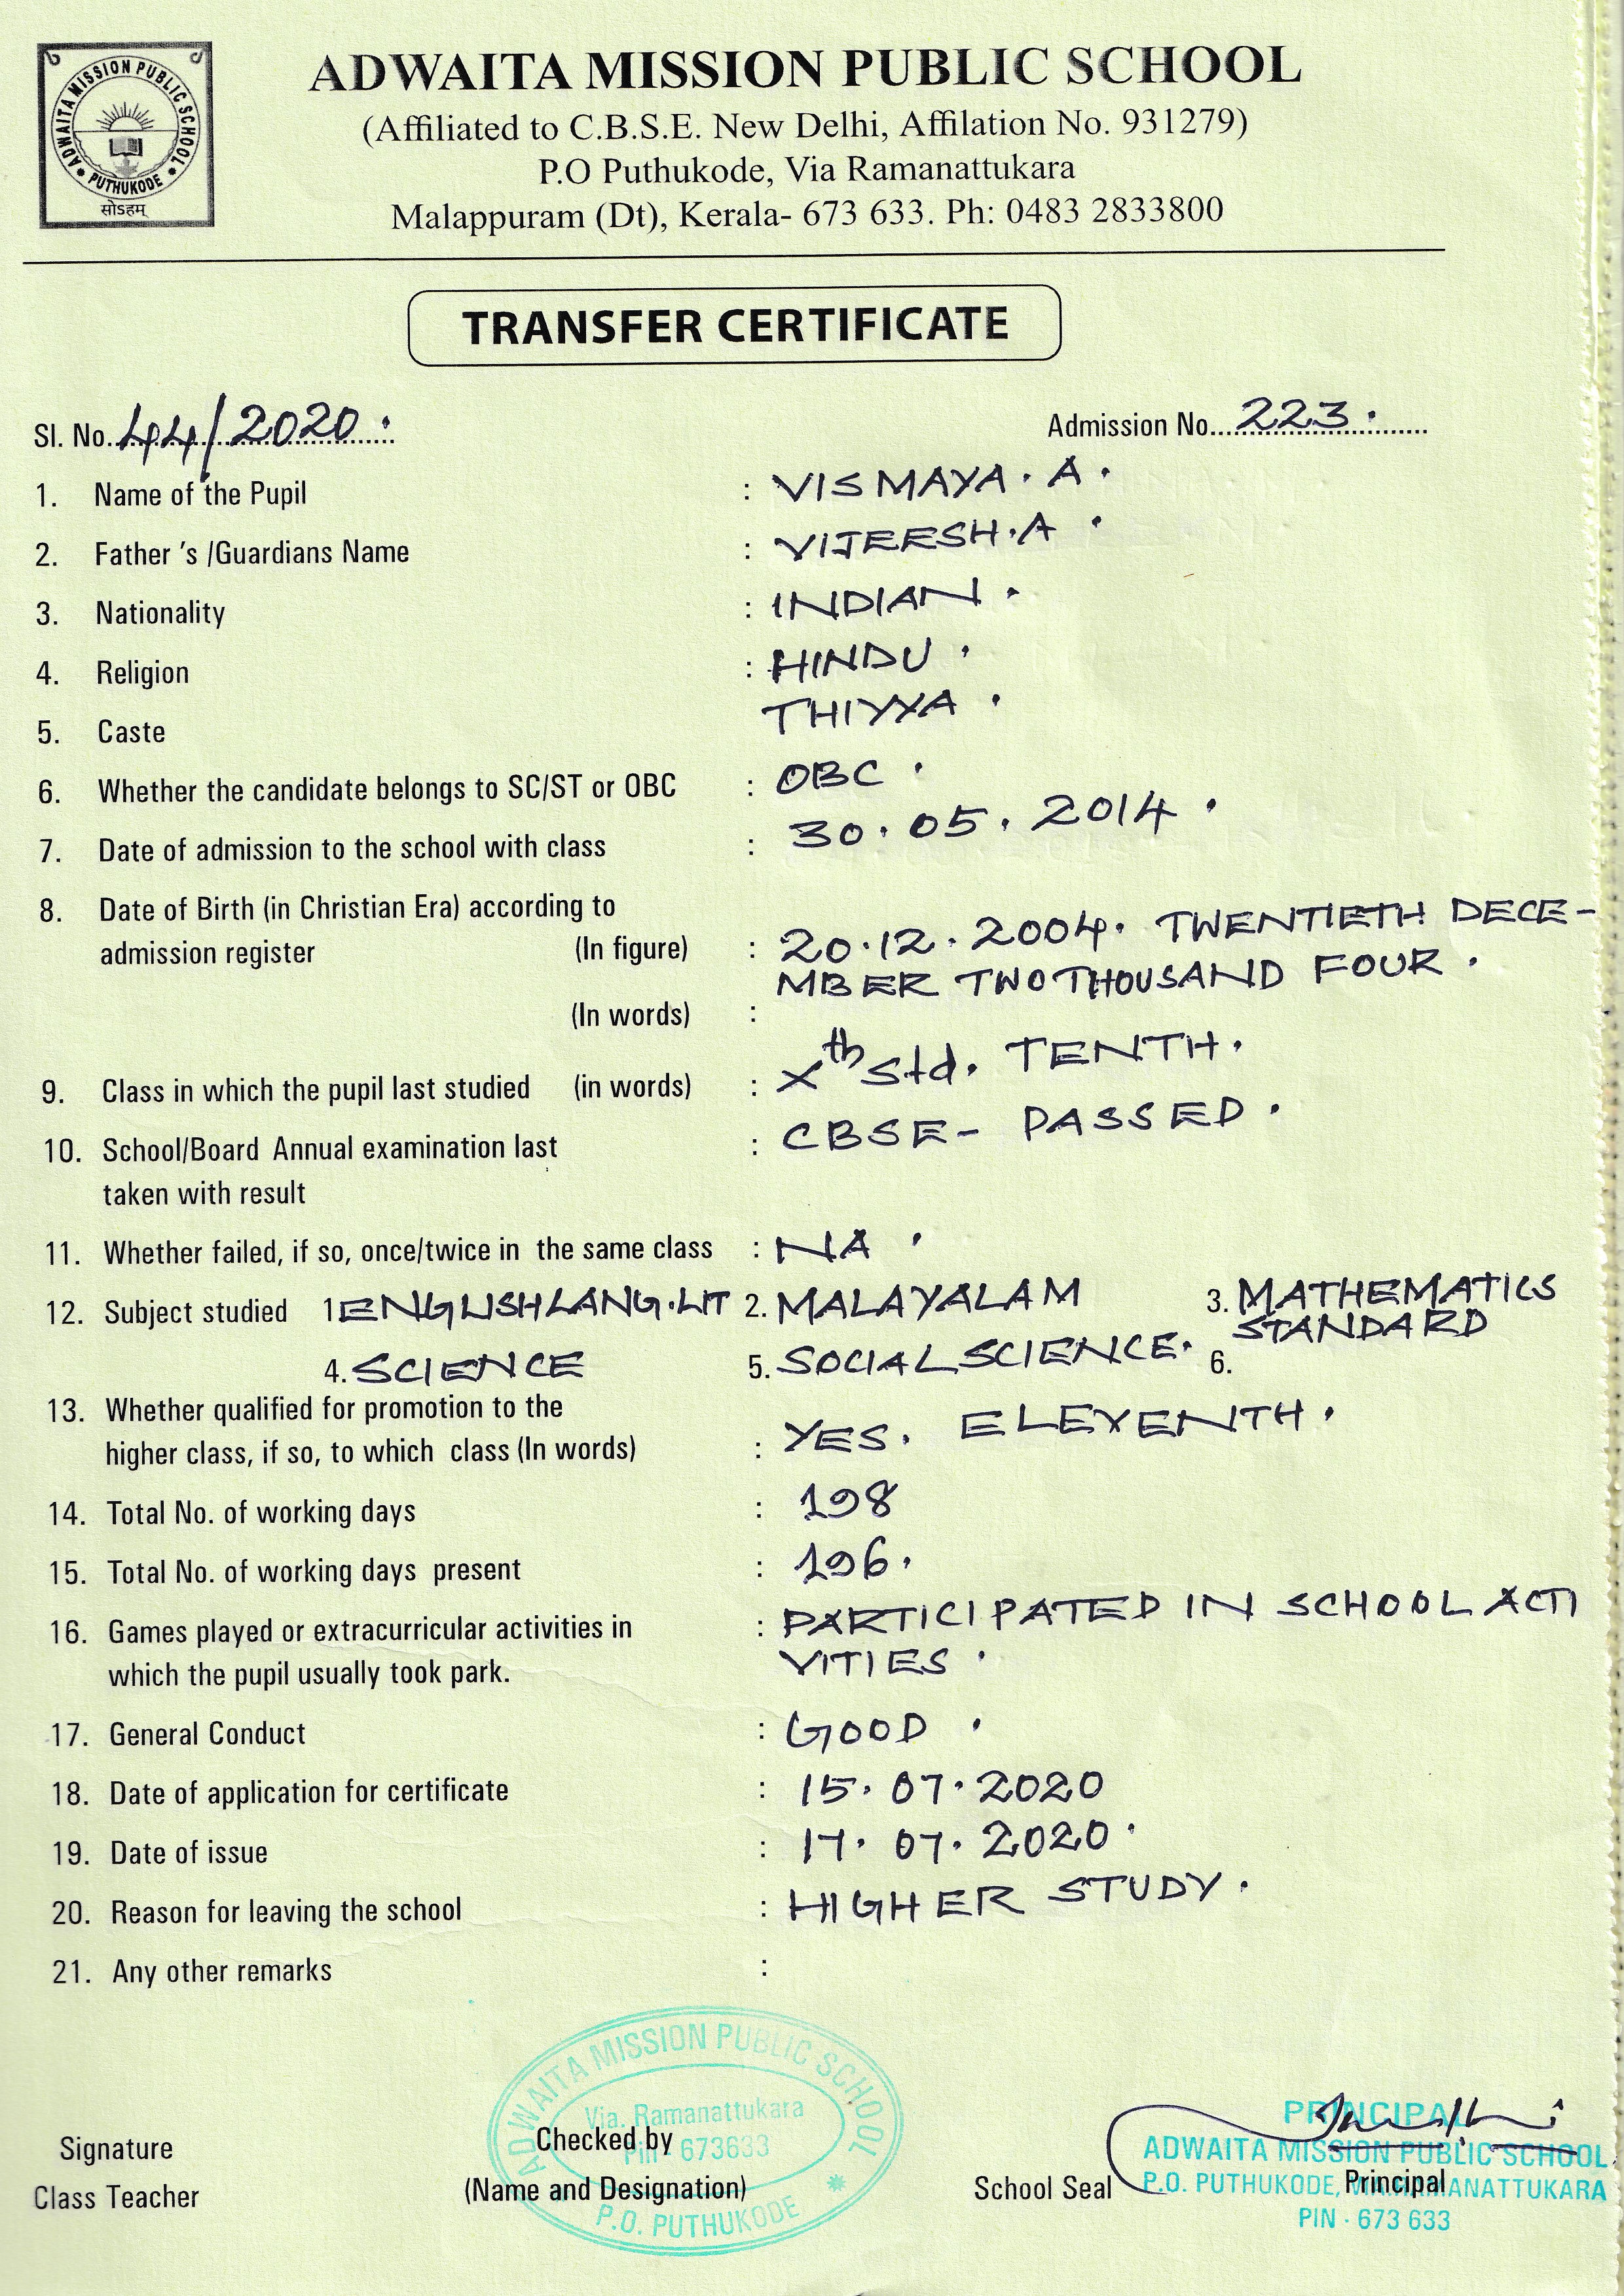 ADWAITA MISSION PUBLIC SCHOOL
PUTHUKODE
सोऽहम्
ADWAITA MISSION PUBLIC SCHOOL
(Affiliated to C.B.S.E. New Delhi, Affilation No. 931279)
P.O Puthukode, Via Ramanattukara
Malappuram (Dt), Kerala- 673 633. Ph: 0483 2833800
TRANSFER CERTIFICATE
Sl. No. 44/2020. Admission No. 223.
1. Name of the Pupil : VISMAYA. A.
2. Father 's /Guardians Name : VIJEESH.A .
3. Nationality : INDIAN .
4. Religion : HINDU .
5. Caste THIYYA .
6. Whether the candidate belongs to SC/ST or OBC : OBC .
7. Date of admission to the school with class : 30.05.2014.
8. Date of Birth (in Christian Era) according to
admission register (In figure) : 20.12.2004. TWENTIETH DECE-
MBER TWO THOUSAND FOUR .
(In words) :
9. Class in which the pupil last studied (in words) : Xth Std. TENTH.
10. School/Board Annual examination last : CBSE- PASSED.
taken with result
11. Whether failed, if so, once/twice in the same class : NA .
12. Subject studied 1 ENGLISH LANG.LIT 2. MALAYALAM 3. MATHEMATICS
STANDARD
4. SCIENCE 5. SOCIAL SCIENCE. 6.
13. Whether qualified for promotion to the
higher class, if so, to which class (In words) : YES. ELEVENTH.
14. Total No. of working days : 198
15. Total No. of working days present : 196.
16. Games played or extracurricular activities in : PARTICIPATED IN SCHOOL ACTI
which the pupil usually took park. VITIES .
17. General Conduct : GOOD .
18. Date of application for certificate : 15.07.2020
19. Date of issue : 17.07.2020.
20. Reason for leaving the school : HIGHER STUDY.
21. Any other remarks :
ADWAITA MISSION PUBLIC SCHOOL
Via. Ramanattukara
Pin - 673633
P.O. PUTHUKODE
Signature
Class Teacher
Checked by
(Name and Designation)
School Seal
Principal
PRINCIPAL
ADWAITA MISSION PUBLIC SCHOOL
P.O. PUTHUKODE, RAMANATTUKARA
PIN - 673 633